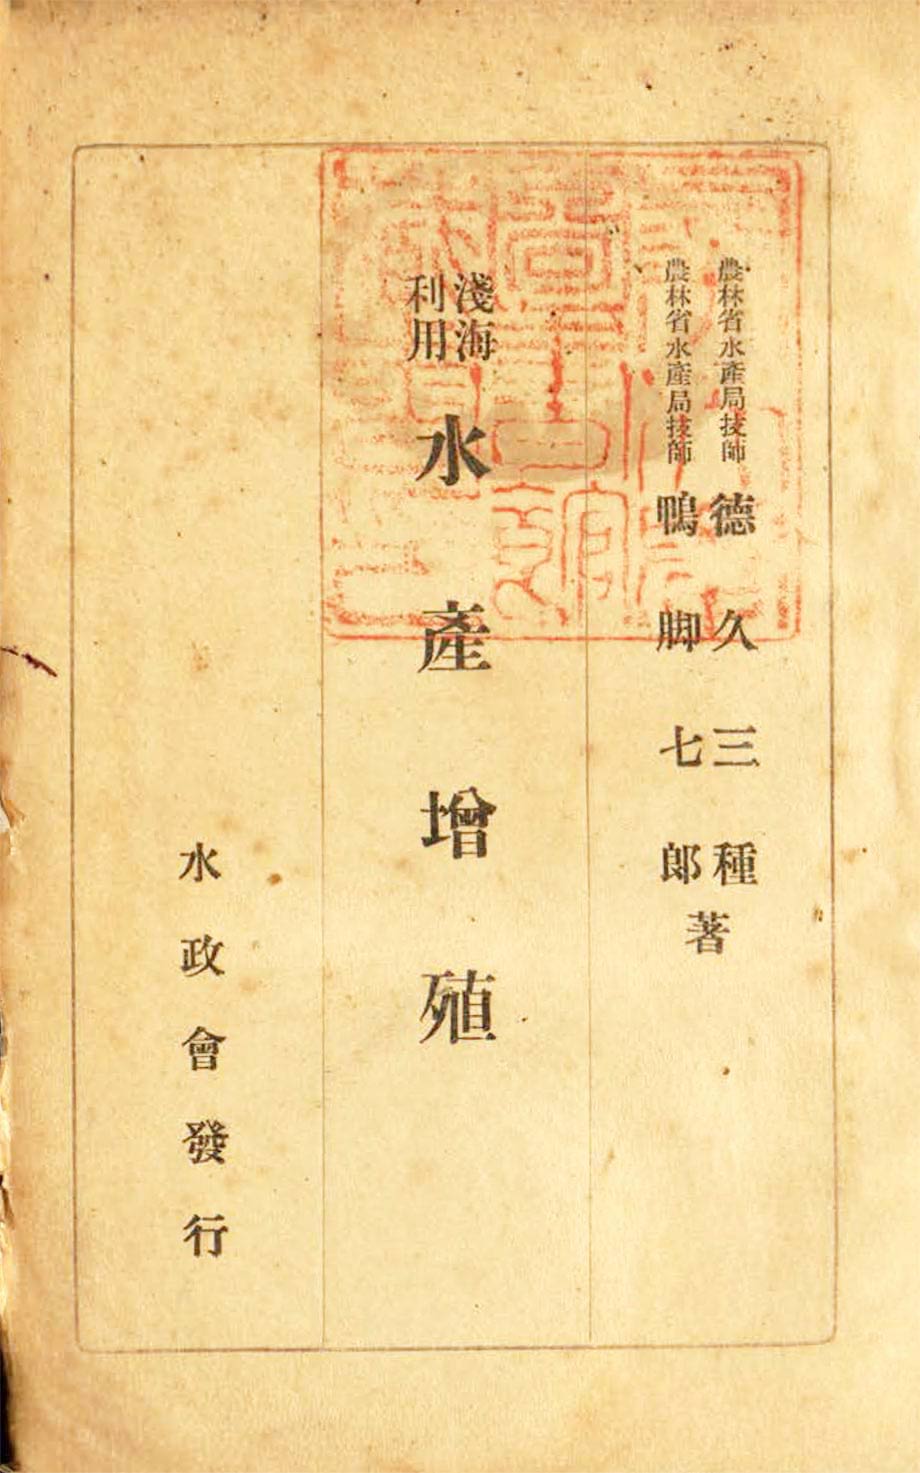 農林省水產局技師 德久三種
農林省水產局技師 鴨脚七郎
著
淺海
利用
水產增殖
水政會發行